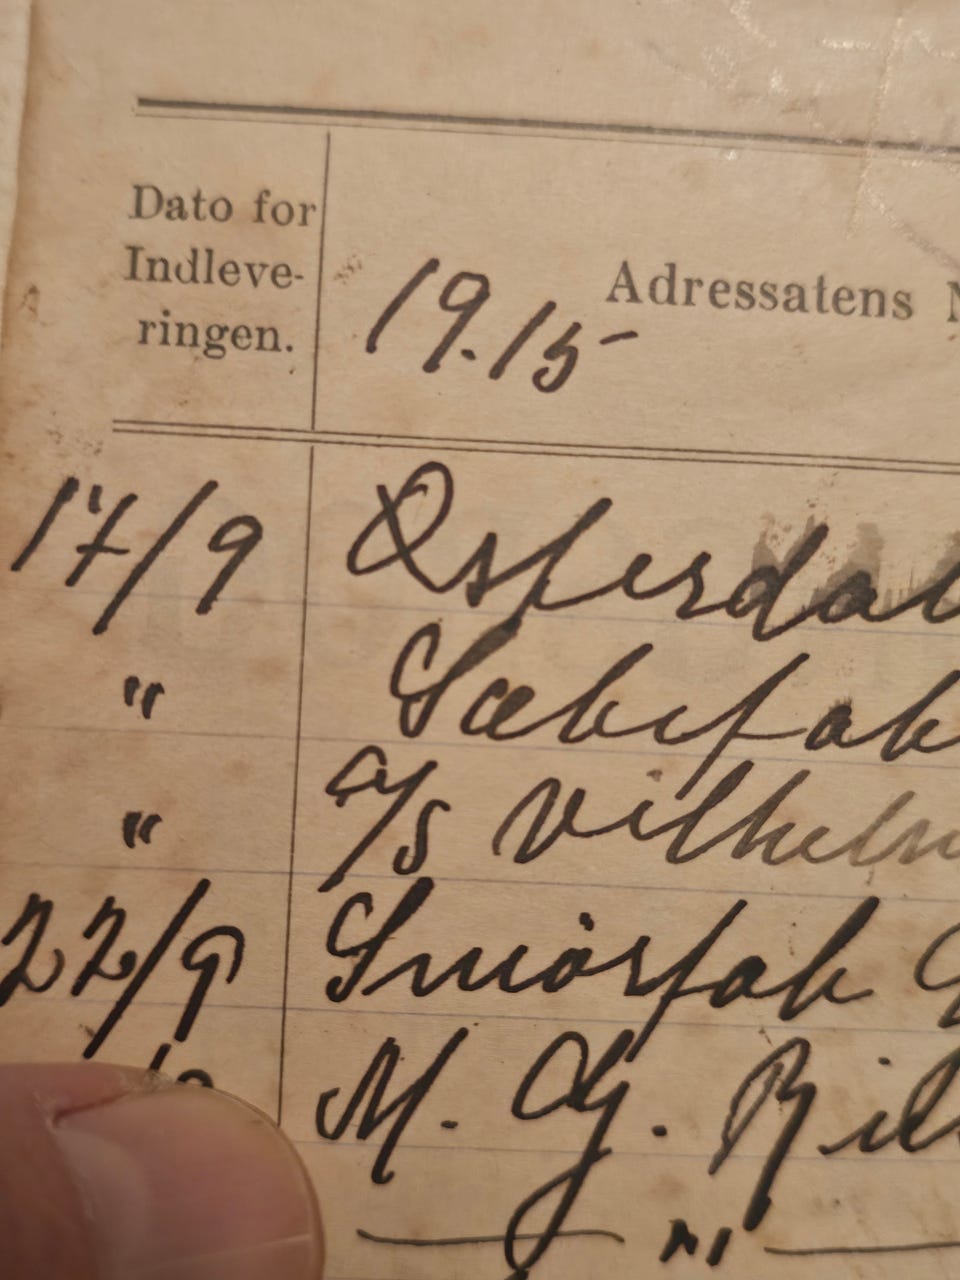 Dato for
Indleve-
ringen.
1915
Adressatens N
17/9 Østerdal
" Sæbefab
" A/S Vilhelm
22/9 Smörfab
M. G. Bil
— " —